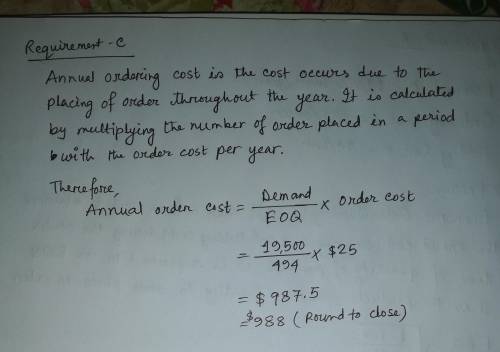 Requirement - C
Annual ordering cost is the cost occurs due to the
placing of order throughout the year. It is calculated
by multiplying the number of order placed in a period
with the order cost per year.
Therefore,
Annual order cost = Demand / EOQ × order cost
= 19,500 / 494 × $25
= $987.5
= $988 (Round to close)